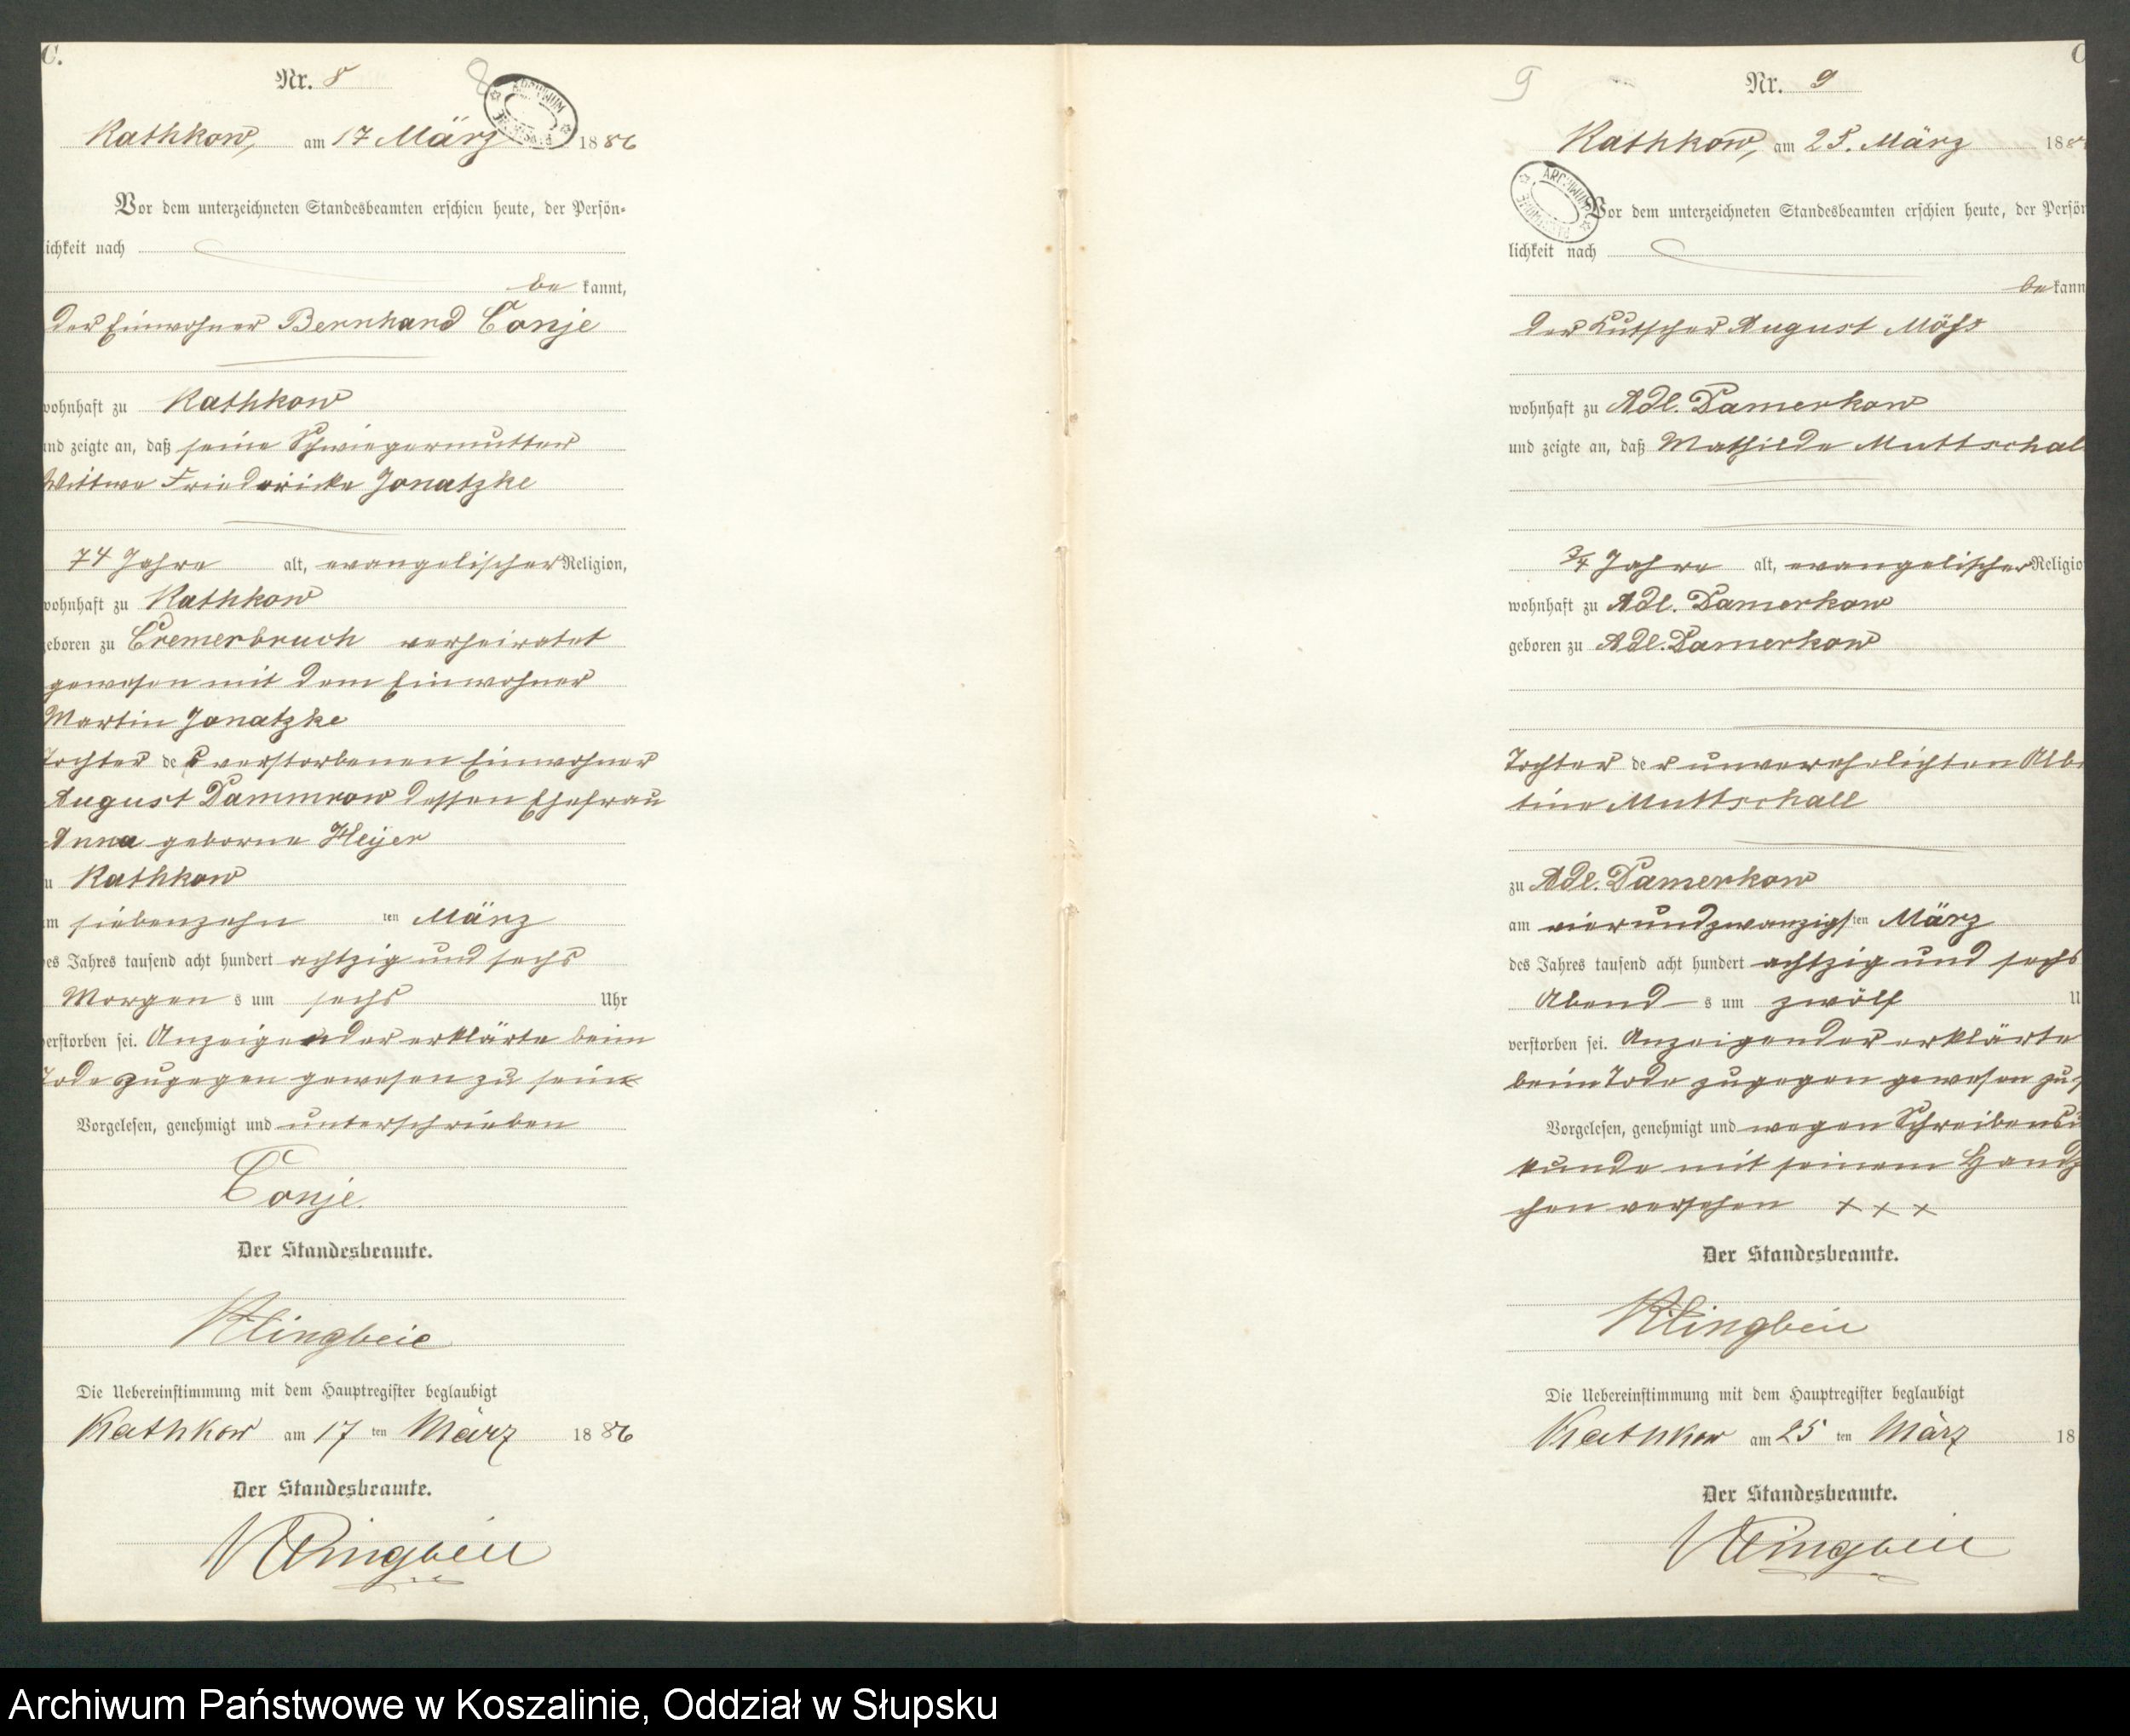 C.
Nr. 8
8
Kathkow, am 17 März 1886
Vor dem unterzeichneten Standesbeamten erschien heute, der Persön-
lichkeit nach
be kannt,
der Einwohner Bernhard Conje
wohnhaft zu Kathkow
und zeigte an, daß seine Schwiegermutter
Wittwe Friedericke Jonatzke
74 Jahre alt, evangelischer Religion,
wohnhaft zu Kathkow
geboren zu Cremerbruch verheiratet
gewesen mit dem Einwohner
Martin Jonatzke
Tochter des verstorbenen Einwohner
August Dammrow dessen Ehefrau
Anna geborne Heyer
zu Kathkow
am siebenzehn ten März
des Jahres tausend acht hundert achtzig und sechs
Morgen s um sechs Uhr
verstorben sei. Anzeigender erklärte beim
Tode zugegen gewesen zu sein
Vorgelesen, genehmigt und unterschrieben
Conje.
Der Standesbeamte.
Klingbeil
Die Uebereinstimmung mit dem Hauptregister beglaubigt
Kathkow am 17 ten März 1886
Der Standesbeamte.
Klingbeil
C
9
Nr. 9
Kathkow, am 25. März 188
ARCHIWUM
Vor dem unterzeichneten Standesbeamten erschien heute, der Persön
lichkeit nach
be kann
der Kutscher August Mäß
wohnhaft zu Adl. Damerkow
und zeigte an, daß Mathilde Muttschal
3/4 Jahre alt, evangelischer Religio
wohnhaft zu Adl. Damerkow
geboren zu Adl. Damerkow
Tochter der unverehelichten Albe
tine Muttschall
zu Adl. Damerkow
am vierundzwanzigsten März
des Jahres tausend acht hundert achtzig und sechs
Abend s um zwölf U
verstorben sei. Anzeigender erklärte
beim Tode zugegen gewesen zu s
Vorgelesen, genehmigt und wegen Schreibensun
kunde mit seinem Handz
chen versehen + + +
Der Standesbeamte.
Klingbeil
Die Uebereinstimmung mit dem Hauptregister beglaubigt
Kathkow am 25 ten März 18
Der Standesbeamte.
Klingbeil
Archiwum Państwowe w Koszalinie, Oddział w Słupsku